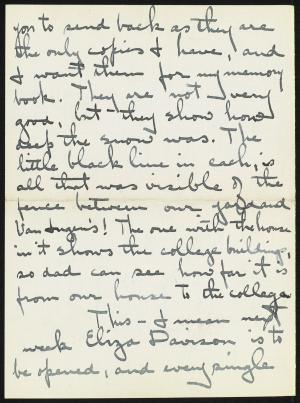 you to send back as they are
the only copies I have, and
I want them for my memory
book. They are not very
good, but they show how
deep the snow was. The
little black line in each, is
all that was visible of the
fence between our yard and
Van Ingen's! The one with the house
in it shows the college buildings,
so dad can see how far it is
from our house to the college
This - I mean next
week Eliza Davison is to
be opened, and every single